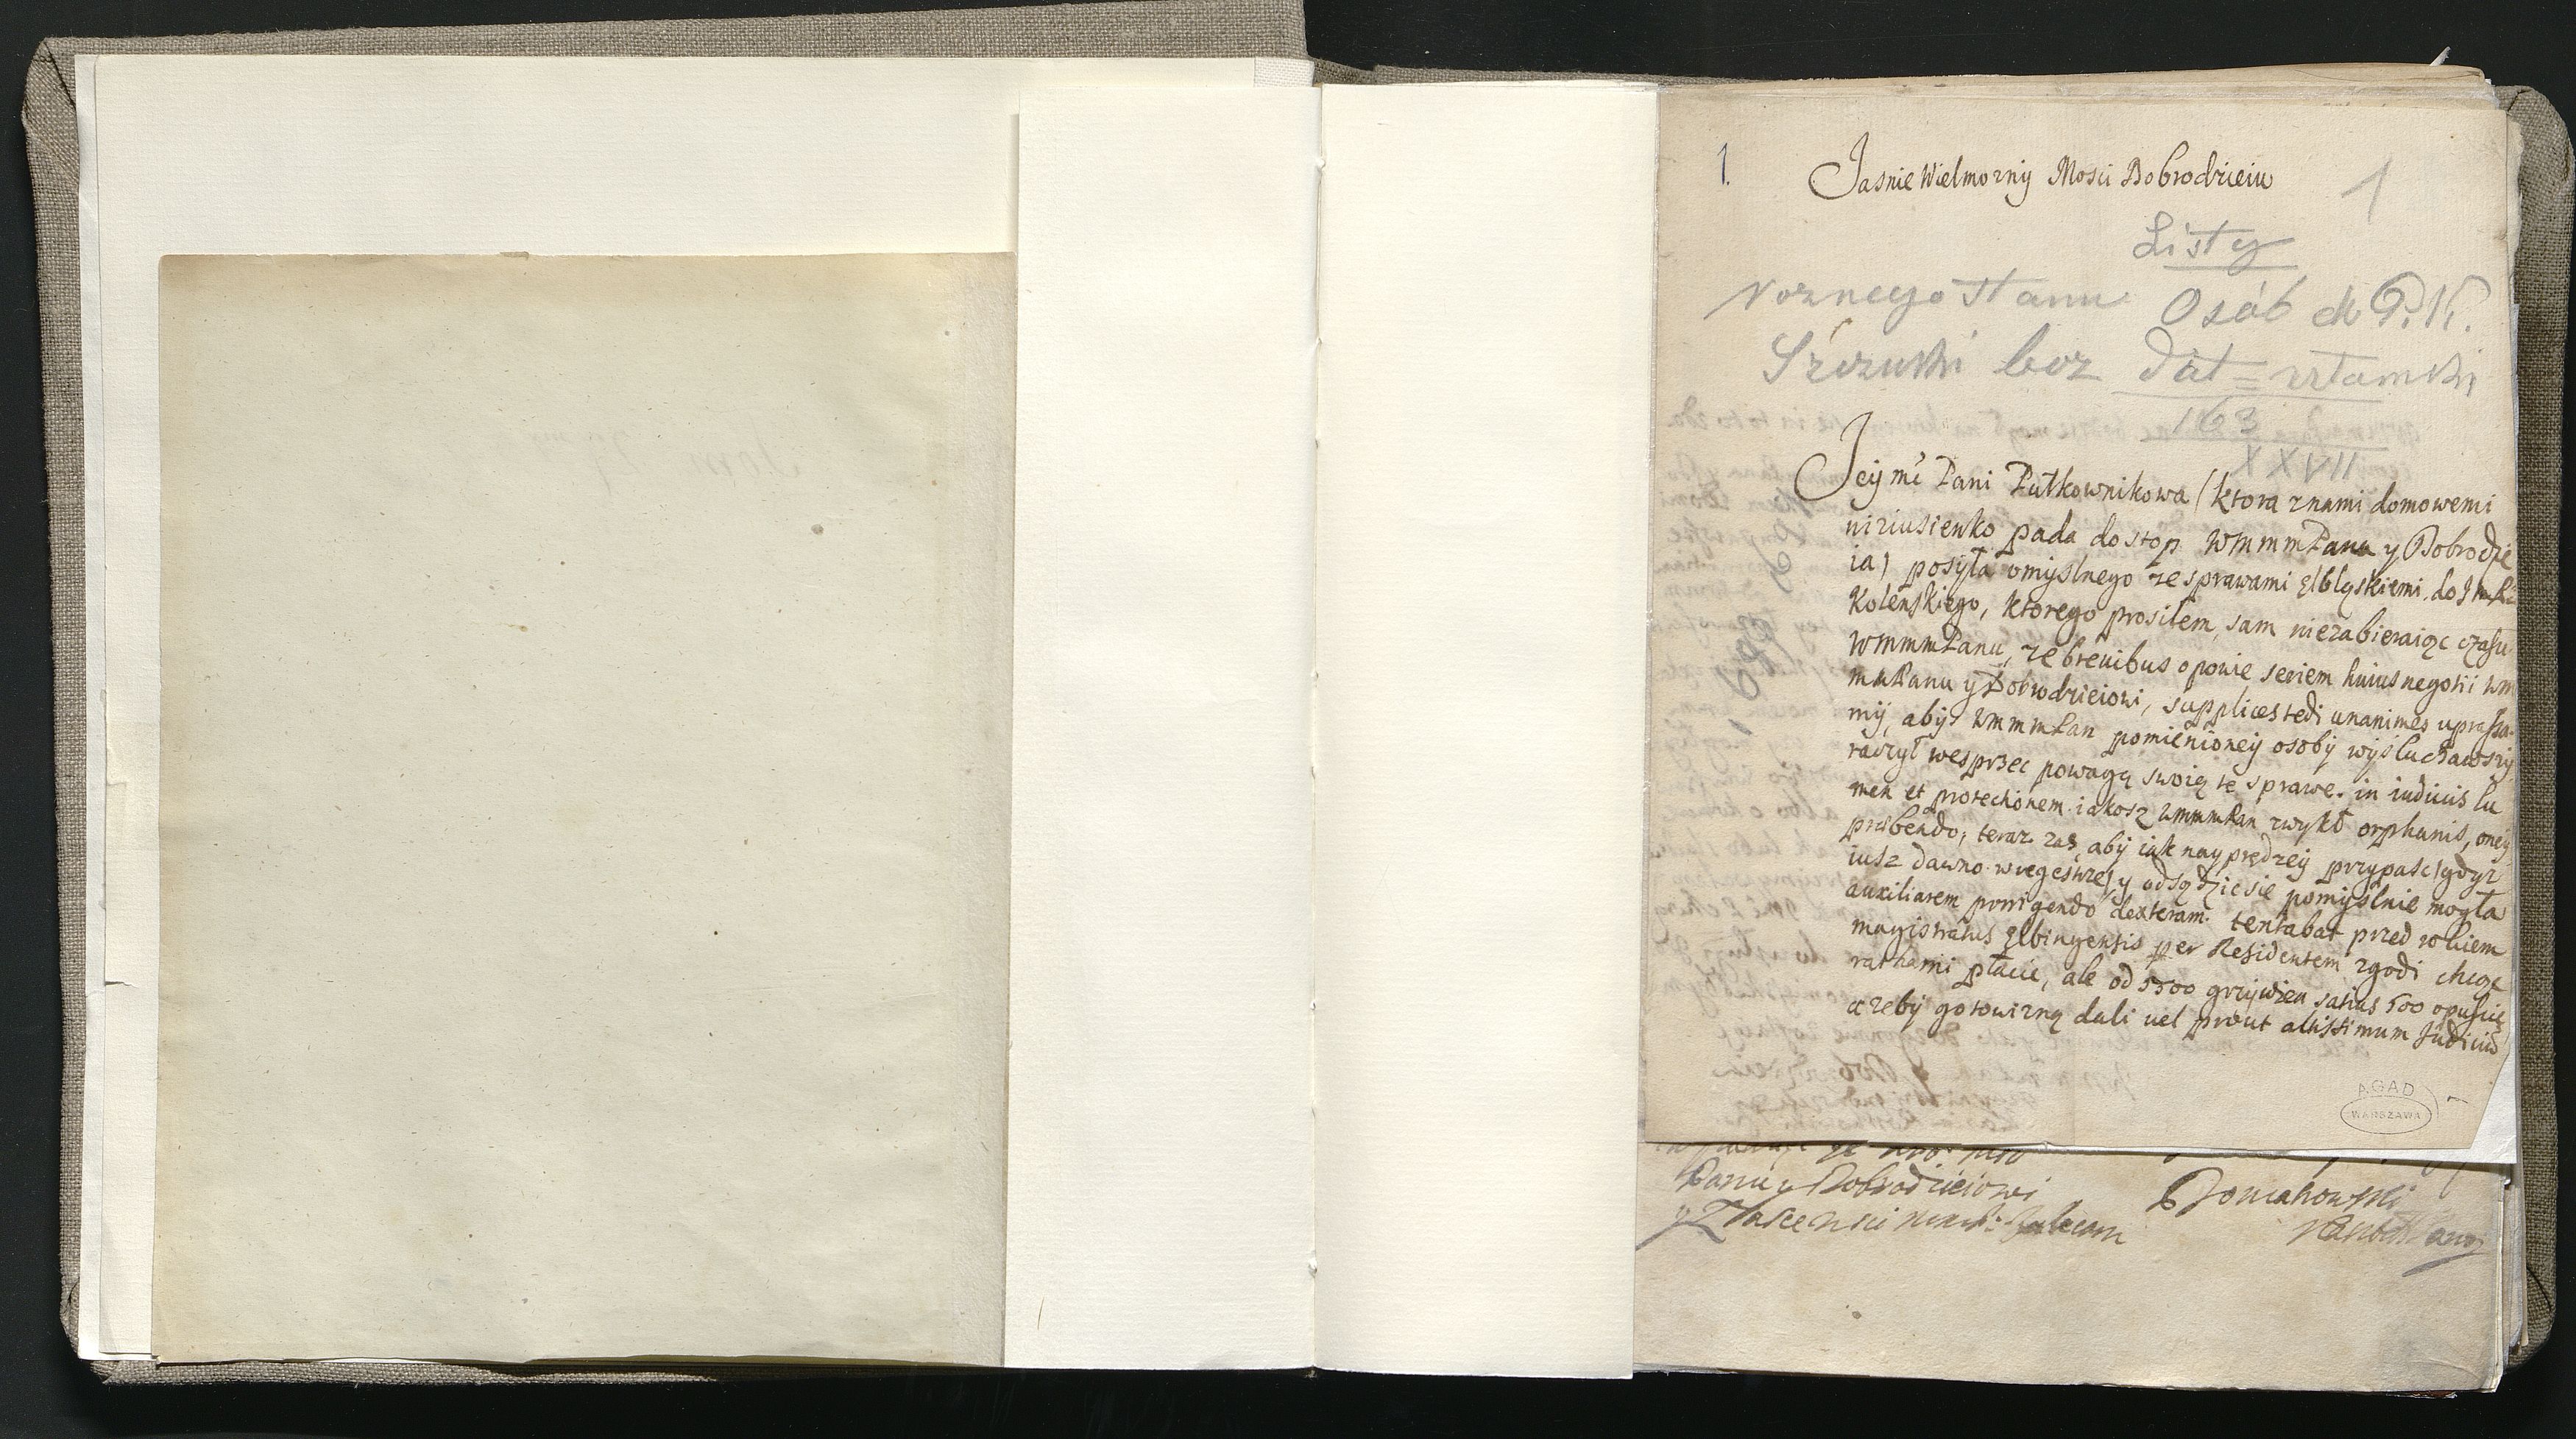 1.
Jasnie Wielmozny Mosci Dobrodzieiu
1
Listy
roznego stanu Osób do P. K.
Szczuki bez dat = ułamki
163
XXVII
Jey mć Pani Pułkownikowa (ktora z nami domowemi
niziusienko pada do stop WmmmPana y Dobrodzie
ia) posyła vmyslnego ze sprawami Elbląskiemi do
Kolenskiego, ktorego prosiłem, sam niezabieraiąc czasu
WmmmPanu, ze breuibus opowie seriem huius negotii Wm
mPanu y Dobrodzieiowi, supplices tedi unanimes uprasza
my, aby WmmmPan pomienioney osoby wysłuchawszy
raczył wesprzec powagą swoią tę sprawę in iudiciis lu
men et protectionem iakosz WmmmPan zwykł orphanis, oney
præbendo, teraz zas, aby iak nayprędzey przypasc (gdyz
iusz dawno w regestrze) y odsądzic się pomyslnie mogła
auxiliarem porrigendo dexteram. tentabat przed rokiem
magistratus Elbingensis per Residentem zgodi chcąc
rathami płacic, ale od 5500 grzywien satius 500 opuscic
a zeby gotowizną dali uel prout altissimum Judiciu
AGAD
WARSZAWA
Panu y Dobrodzieiowi
y Łasce